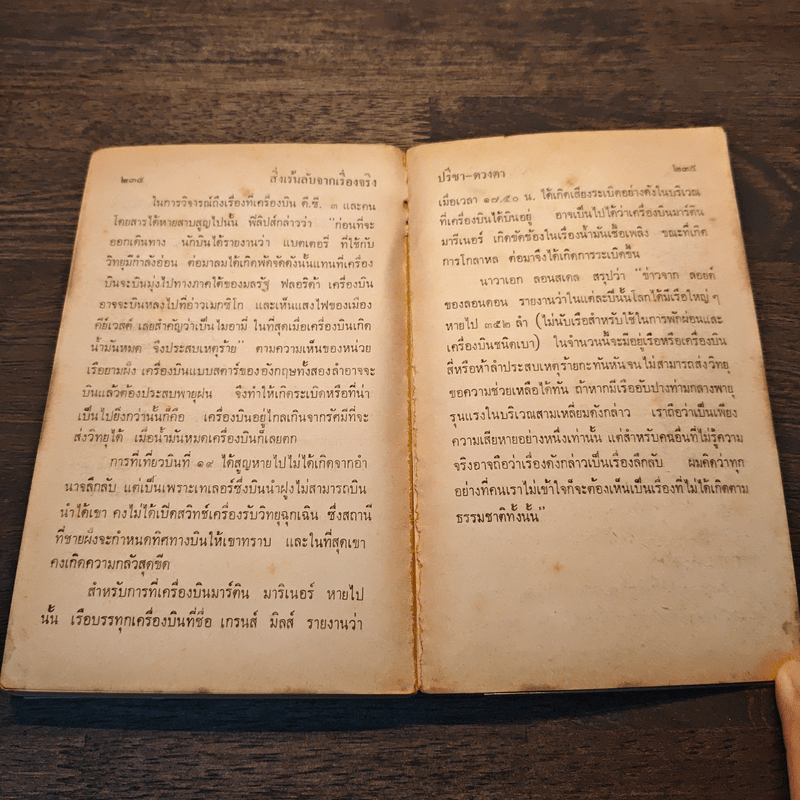 ๒๓๔ สิ่งเร้นลับจากเรื่องจริง
ในการวิจารณ์ถึงเรื่องที่เครื่องบิน ดี.ซี. ๓ และคน
โดยสารได้หายสาบสูญไปนั้น ฟิลิปส์กล่าวว่า "ก่อนที่จะ
ออกเดินทาง นักบินได้รายงานว่า แบตเตอรี่ ที่ใช้กับ
วิทยุมีกำลังอ่อน ต่อมาลมได้เกิดพัดจัดดังนั้นแทนที่เครื่อง
บินจะบินมุ่งไปทางภาคใต้ของมลรัฐ ฟลอริด้า เครื่องบิน
อาจจะบินหลงไปที่อ่าวเมกซิโก และเห็นแสงไฟของเมือง
คีย์เวสต์ เลยสำคัญว่าเป็นไมอามี่ ในที่สุดเมื่อเครื่องบินเกิด
น้ำมันหมด จึงประสบเหตุร้าย" ตามความเห็นของหน่วย
เรือยามฝั่ง เครื่องบินแบบสตาร์ของอังกฤษทั้งสองลำอาจจะ
บินแล้วต้องประสบพายุฝน จึงทำให้เกิดระเบิดหรือที่น่า
เป็นไปยิ่งกว่านั้นก็คือ เครื่องบินอยู่ไกลเกินจากรัศมีที่จะ
ส่งวิทยุได้ เมื่อน้ำมันหมดเครื่องบินก็เลยตก
การที่เที่ยวบินที่ ๑๙ ได้สูญหายไปไม่ได้เกิดจากอำ
นาจลึกลับ แต่เป็นเพราะเทเลอร์ซึ่งบินนำฝูงไม่สามารถบิน
นำได้เขา คงไม่ได้เปิดสวิทช์เครื่องรับวิทยุฉุกเฉิน ซึ่งสถานี
ที่ชายฝั่งจะกำหนดทิศทางบินให้เขาทราบ และในที่สุดเขา
คงเกิดความกลัวสุดขีด
สำหรับการที่เครื่องบินมาร์ติน มาริเนอร์ หายไป
นั้น เรือบรรทุกเครื่องบินที่ชื่อ เกรนส์ มิลส์ รายงานว่า
ปรีชา-ดวงตา ๒๓๕
เมื่อเวลา ๑๗.๕๐ น. ได้เกิดเสียงระเบิดอย่างดังในบริเวณ
ที่เครื่องบินได้บินอยู่ อาจเป็นไปได้ว่าเครื่องบินมาร์ติน
มาริเนอร์ เกิดขัดข้องในเรื่องน้ำมันเชื้อเพลิง ขณะที่เกิด
การโกลาหล ต่อมาจึงได้เกิดการระเบิดขึ้น
นาวาเอก ลอนสเดล สรุปว่า "ข่าวจาก ลอยด์
ของลอนดอน รายงานว่าในแต่ละปีนั้นโลกได้มีเรือใหญ่ ๆ
หายไป ๓๕๒ ลำ (ไม่นับเรือสำหรับใช้ในการพักผ่อนและ
เครื่องบินชนิดเบา) ในจำนวนนี้จะมีอยู่เรือหรือเครื่องบิน
สี่หรือห้าลำประสบเหตุร้ายกะทันหันจน ไม่สามารถส่งวิทยุ
ขอความช่วยเหลือได้ทัน ถ้าหากมีเรืออับปางท่ามกลางพายุ
รุนแรงในบริเวณสามเหลี่ยมดังกล่าว เราถือว่าเป็นเพียง
ความเสียหายอย่างหนึ่งเท่านั้น แต่สำหรับคนอื่นที่ไม่รู้ความ
จริงอาจถือว่าเรื่องดังกล่าวเป็นเรื่องลึกลับ ผมคิดว่าทุก
อย่างที่คนเราไม่เข้าใจก็จะต้องเห็นเป็นเรื่องที่ไม่ได้เกิดตาม
ธรรมชาติทั้งนั้น"